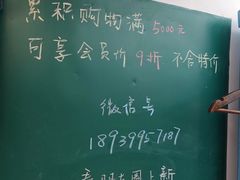 累积购物满5000元
可享会员价9折 不含特价
微信号
18939957187